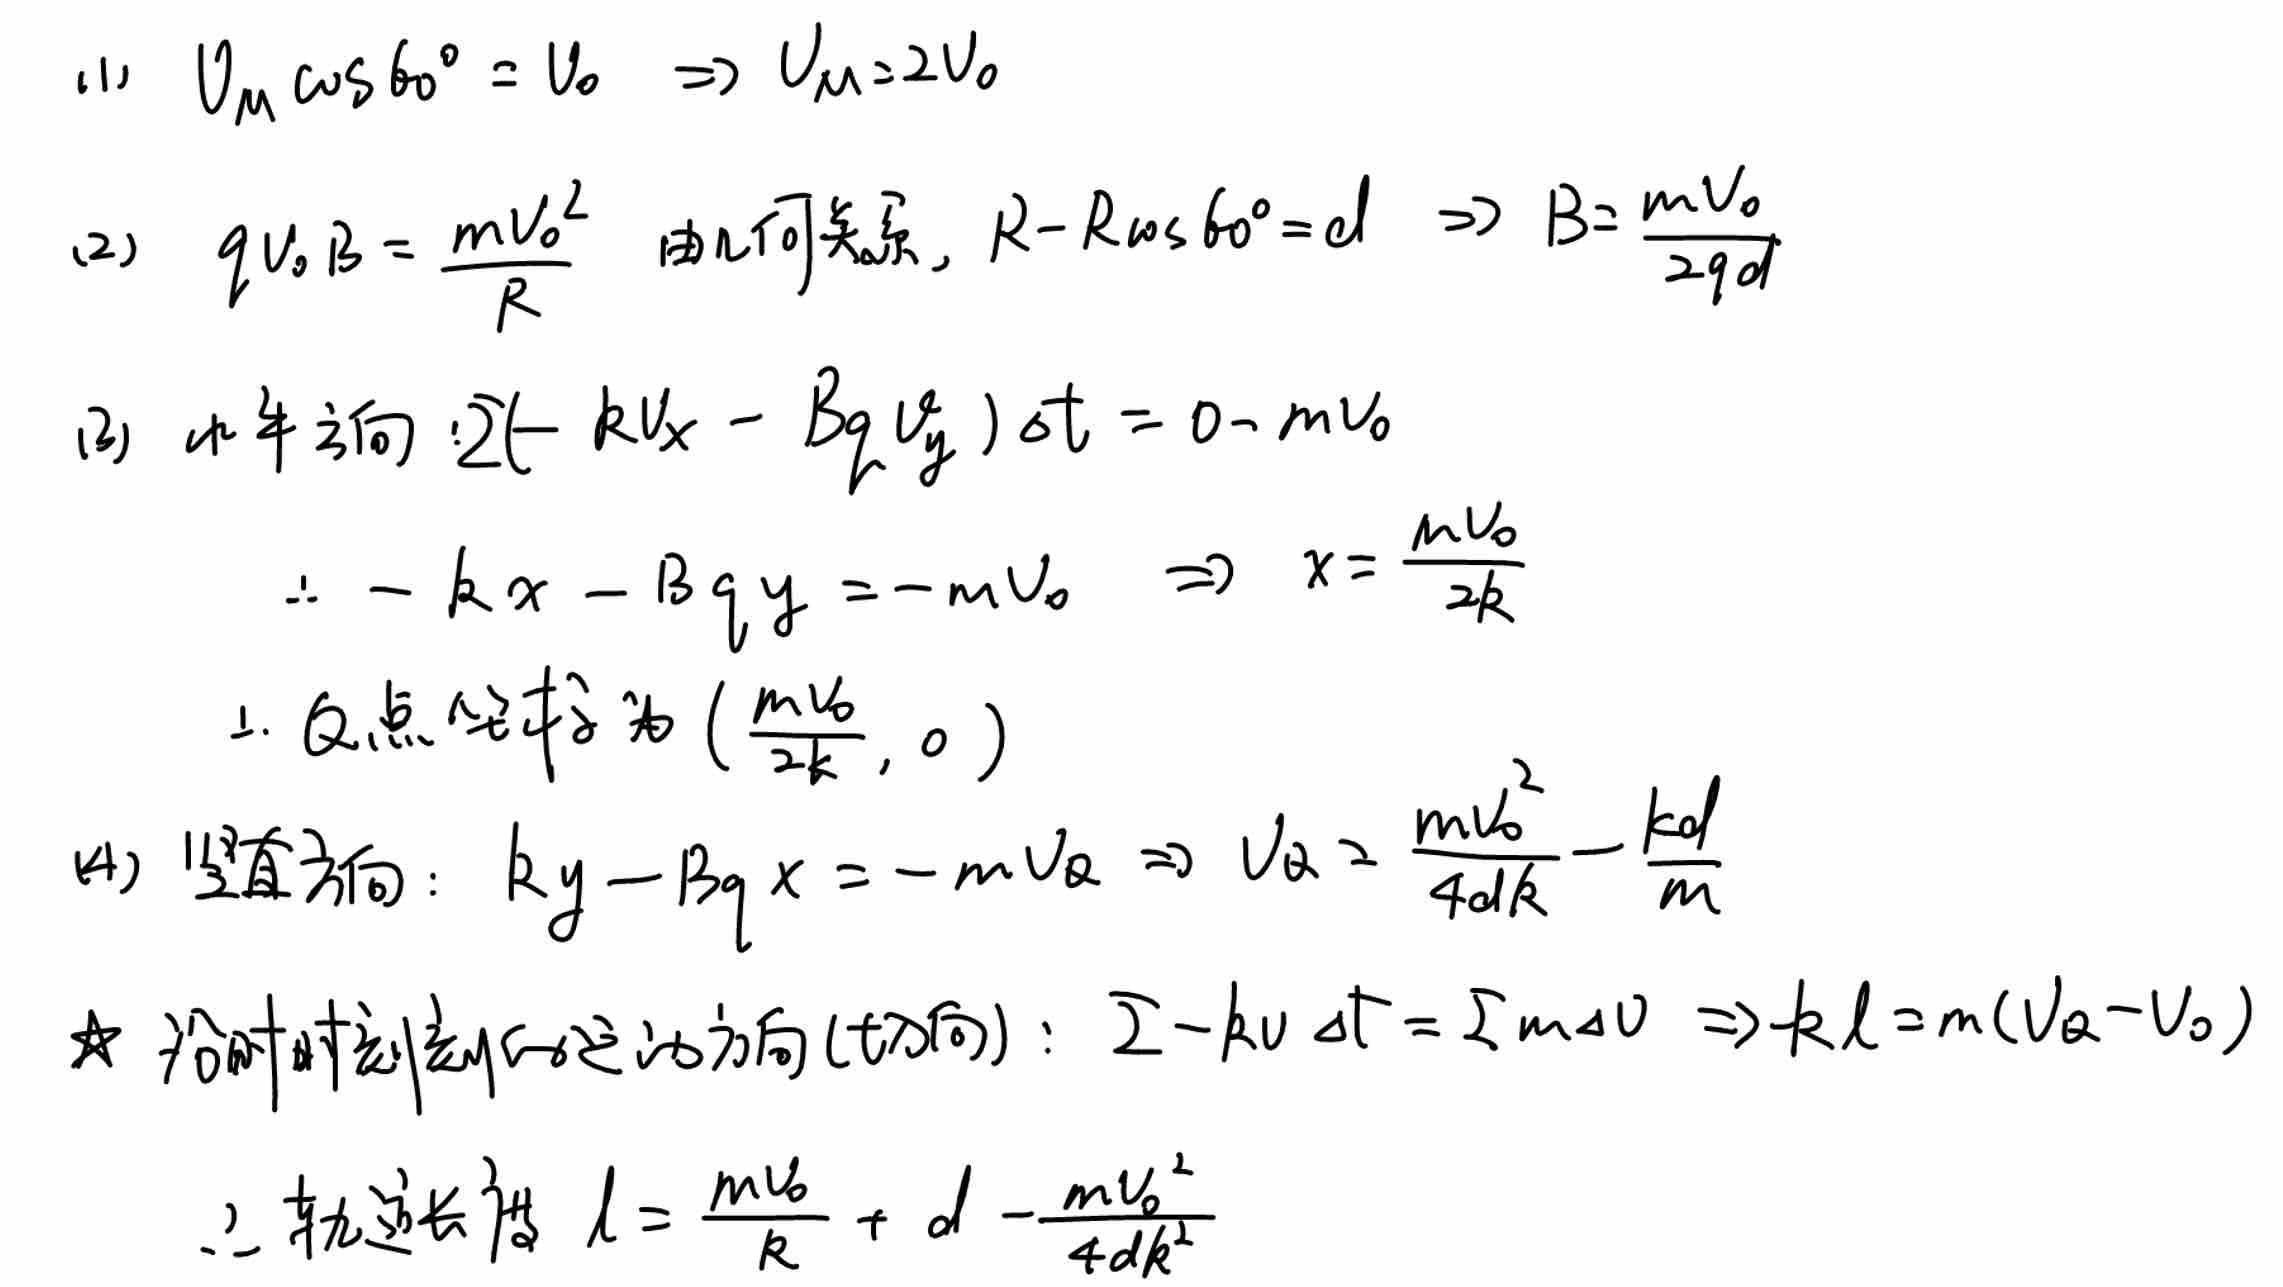 (1) v_M cos60° = v₀ ⇒ v_M = 2v₀
(2) qv₀B = mv₀²/R 由几何关系, R-Rcos60° = d ⇒ B = mv₀/2qd
(3) 水平方向: Σ(-kv_x - Bqv_y)Δt = 0 - mv₀
∴ -kx - Bqy = -mv₀ ⇒ x = mv₀/2k
∴ Q点坐标为(mv₀/2k, 0)
(4) 竖直方向: ky - Bqx = -mv_Q ⇒ v_Q = mv₀²/4dk - kd/m
☆ 沿时时刻刻的运动方向(切向): Σ-kvΔt = ΣmΔv ⇒ -kl = m(v_Q - v₀)
∴ 轨迹长度 l = mv₀/k + d - mv₀²/4dk²